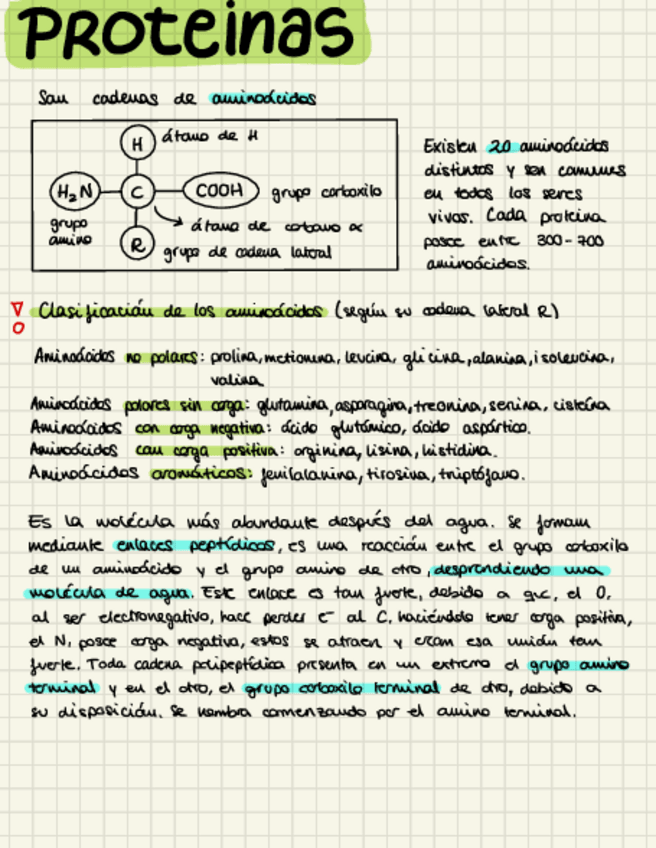 Proteinas
Son cadenas de aminoácidos
H átomo de H
H₂N C COOH grupo carboxilo
grupo amino
átomo de carbono α
R grupo de cadena lateral
Existen 20 aminoácidos
distintos y son comunes
en todos los seres
vivos. Cada proteína
posee entre 300-700
aminoácidos.
Clasificación de los aminoácidos (según su cadena lateral R)
Aminoácidos no polares: prolina, metionina, leucina, glicina, alanina, isoleucina,
valina
Aminoácidos polares sin carga: glutamina, asparagina, treonina, serina, cisteína
Aminoácidos con carga negativa: ácido glutámico, ácido aspártico.
Aminoácidos con carga positiva: arginina, lisina, histidina.
Aminoácidos aromáticos: fenilalanina, tirosina, triptófano.
Es la molécula más abundante después del agua. Se forman
mediante enlaces peptídicos, es una reacción entre el grupo carboxilo
de un aminoácido y el grupo amino de otro, desprendiendo una
molécula de agua. Este enlace es tan fuerte, debido a que, el O,
al ser electronegativo, hace perder e⁻ al C, haciéndolo tener carga positiva,
el N, posee carga negativa, estos se atraen y crean esa unión tan
fuerte. Toda cadena polipeptídica presenta en un extremo el grupo amino
terminal y en el otro, el grupo carboxilo terminal de otro, debido a
su disposición. Se nombra comenzando por el amino terminal.